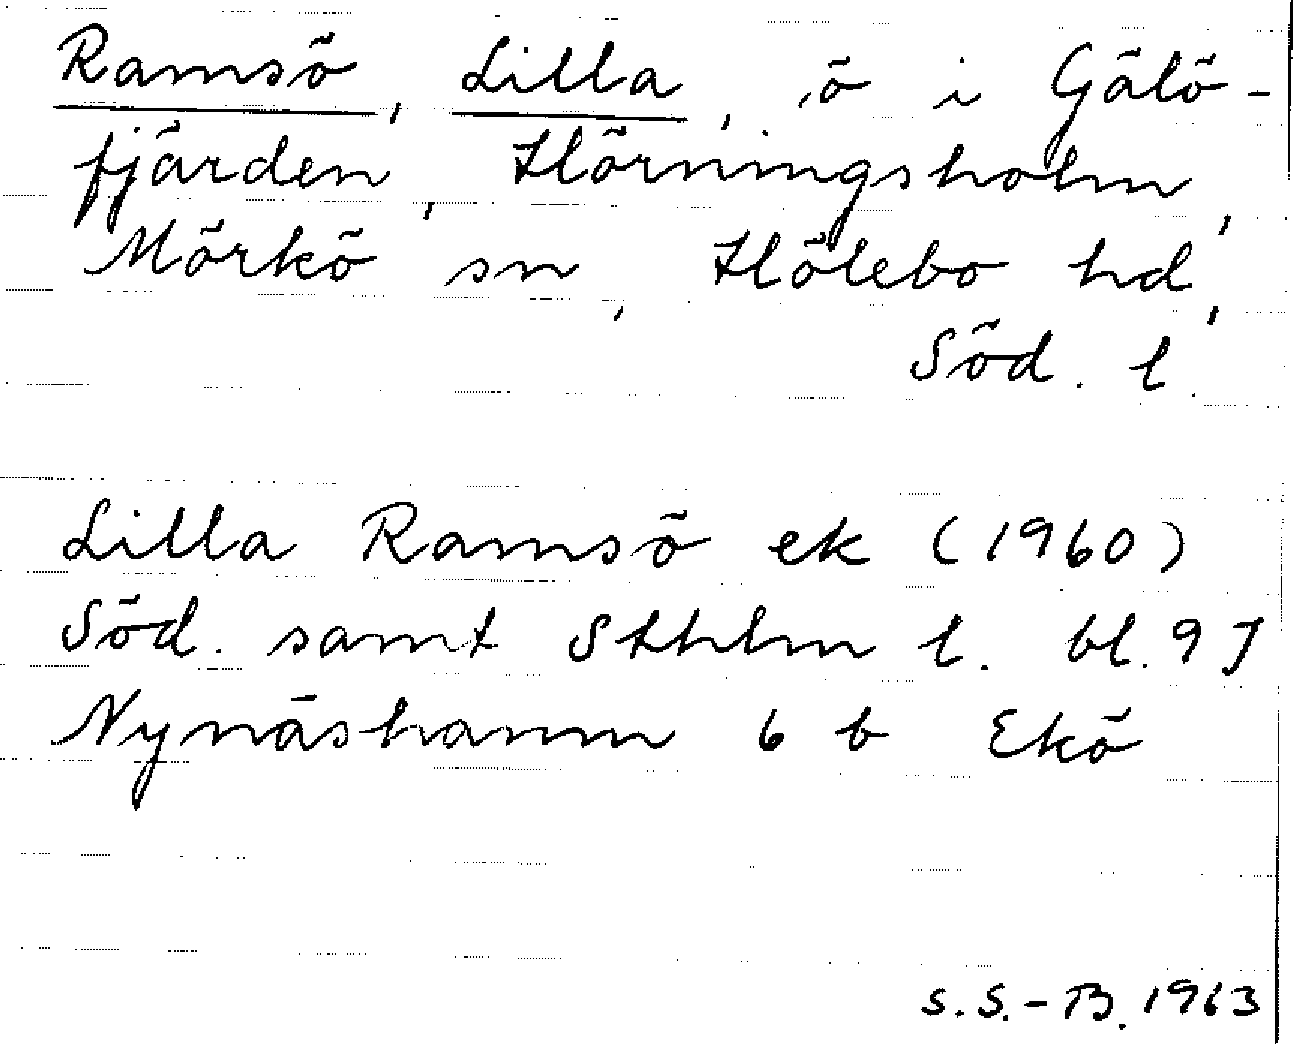 Ramsö, Lilla, ö i Gälö-
fjärden, Hörningsholm,
Mörkö sn, Hölebo hd,
Söd. l.
Lilla Ramsö ek (1960)
Söd. samt Sthlm l. bl. 9 J
Nynäshamn 6 b Ekö
S.S.-B. 1963